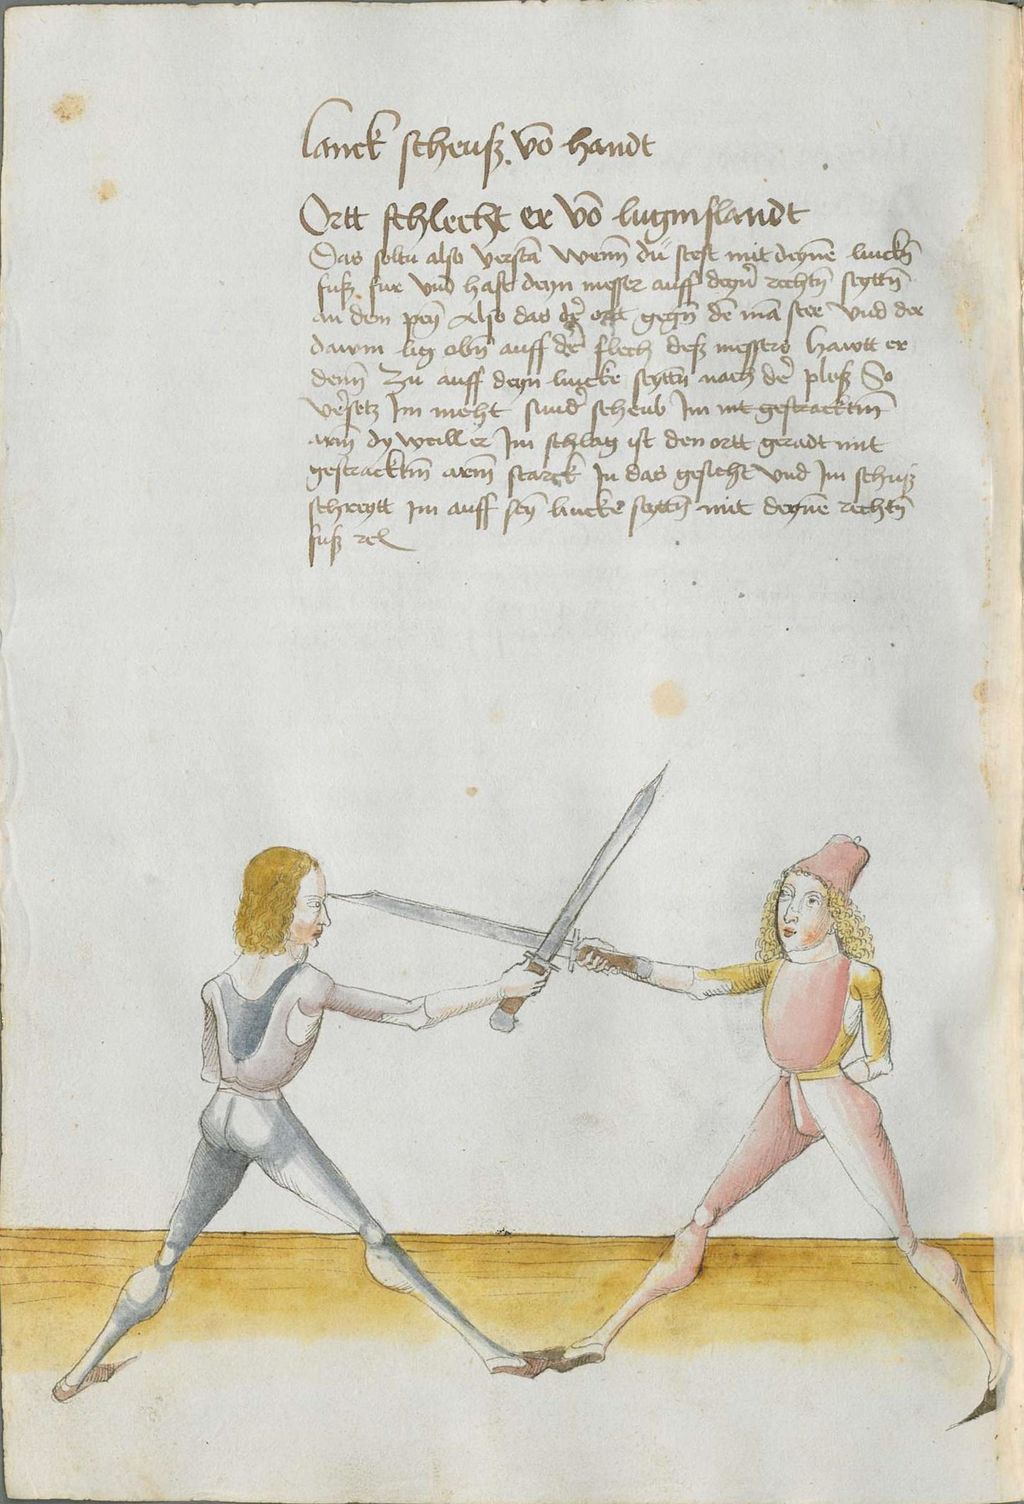 lanck scheusz vō handt
Ortt schlecht er vō luginslandt
Das soltu also verstā wenn̄ dü stest mit deynē lincken̄
fusz fur vnd hast deyn messer auff deyn̄ rechtn̄ seyttn̄
an dem peyn̄ Also das dˀ ortt gegn̄ dē mā stee vnd der
dawm lig obn̄ auff dˀ flech desz messers hawtt er
denn̄ zu auff deyn lincke seyttn̄ nach dˀ plosz So
vˀsetz Im nicht sundˀ scheub Im mit gestracktm̄
arm̄ dy weill er Im schlag ist den ortt geradt mit
gestracktm̄ arm̄ starck In das gesicht vnd Im schusz
schreytt im auff seyn̄ lincke seyttn̄ mit deynē rechtn̄
fusz